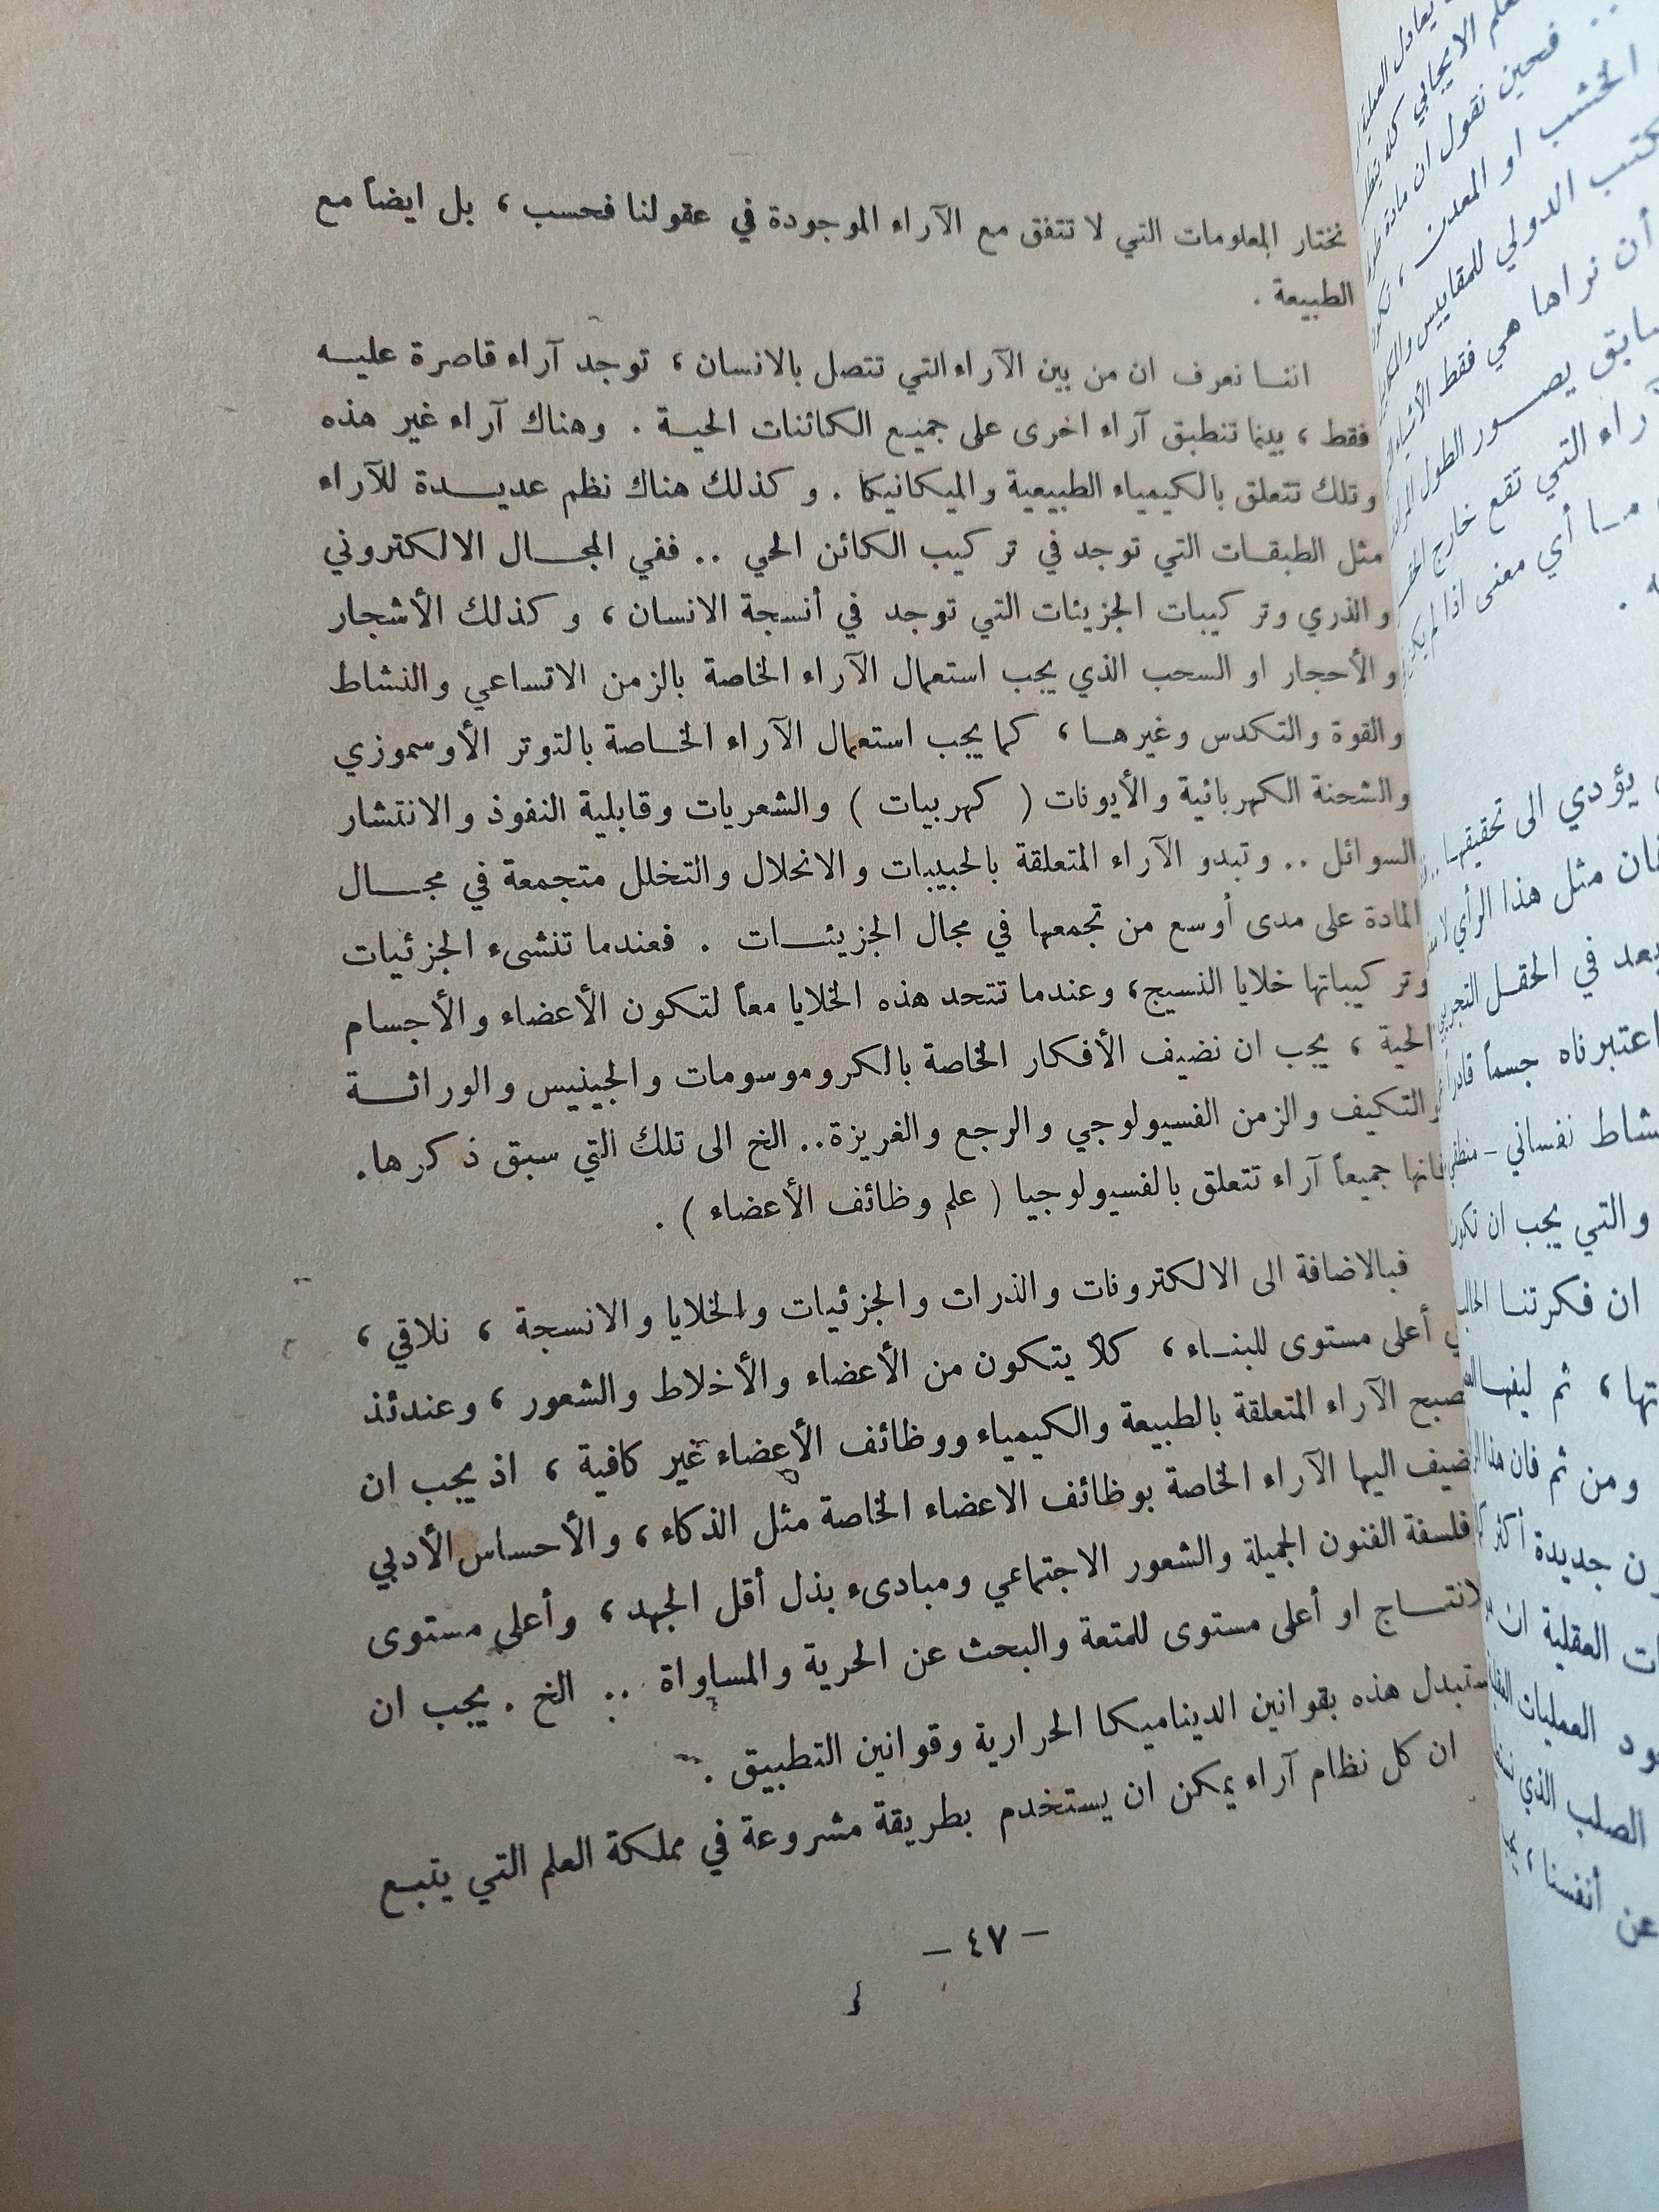 نختار المعلومات التي لا تتفق مع الآراء الموجودة في عقولنا فحسب ، بل ايضاً مع
الطبيعة .
اننا نعرف ان من بين الآراء التي تتصل بالانسان ، توجد آراء قاصرة عليه
فقط ، بينما تنطبق آراء اخرى على جميع الكائنات الحية . وهناك آراء غير هذه
وتلك تتعلق بالكيمياء الطبيعية والميكانيكا . وكذلك هناك نظم عديدة للآراء
مثل الطبقات التي توجد في تركيب الكائن الحي .. ففي المجال الالكتروني
والذري وتركيبات الجزيئات التي توجد في أنسجة الانسان ، وكذلك الأشجار
والأحجار او السحب الذي يجب استعمال الآراء الخاصة بالزمن الاتساعي والنشاط
والقوة والتكدس وغيرها ، كما يجب استعمال الآراء الخاصة بالتوتر الأوسموزي
والشحنة الكهربائية والأيونات ( كهربيات ) والشعريات وقابلية النفوذ والانتشار
السوائل .. وتبدو الآراء المتعلقة بالحبيبات والانحلال والتخلل متجمعة في مجال
المادة على مدى أوسع من تجمعها في مجال الجزيئات . فعندما تنشىء الجزئيات
وتركيباتها خلايا النسيج، وعندما تتحد هذه الخلايا معاً لتكون الأعضاء والأجسام
الحية ، يجب ان نضيف الأفكار الخاصة بالكروموسومات والجينيس والوراثة
والتكيف والزمن الفسيولوجي والرجع والغريزة.. الخ الى تلك التي سبق ذكرها.
فانها جميعاً آراء تتعلق بالفسيولوجيا ( علم وظائف الأعضاء ) .
فبالاضافة الى الالكترونات والذرات والجزئيات والخلايا والانسجة ، نلاقي ،
أعلى مستوى للبناء ، كلا يتكون من الأعضاء والأخلاط والشعور ، وعندئذ
الآراء المتعلقة بالطبيعة والكيمياء ووظائف الأعضاء غير كافية ، اذ يجب ان
اليها الآراء الخاصة بوظائف الاعضاء الخاصة مثل الذكاء ، والأحساس الأدبي
فلسفة الفنون الجميلة والشعور الاجتماعي ومبادىء بذل أقل الجهد ، وأعلى مستوى
او أعلى مستوى للمتعة والبحث عن الحرية والمساواة .. الخ . يجب ان
هذه بقوانين الديناميكا الحرارية وقوانين التطبيق .
ان كل نظام آراء يمكن ان يستخدم بطريقة مشروعة في مملكة العلم التي يتبع
– ٤٧ –
فحين نقول ان مادة
الخشب او المعدن ،
الدولي للمقاييس
أن نراها هي فقط
يصور الطول
التي تقع خارج
أي معنى اذا لم
يؤدي الى تحقيقها
مثل هذا الرأي لا
في الحقل
اعتبرناه جسماً
نفساني –
والتي يجب ان تكون
ان فكرتنا
ثم
ومن ثم فان هذا
جديدة أكثر
العقلية ان
العمليات
الصلب الذي
عن أنفسنا ،